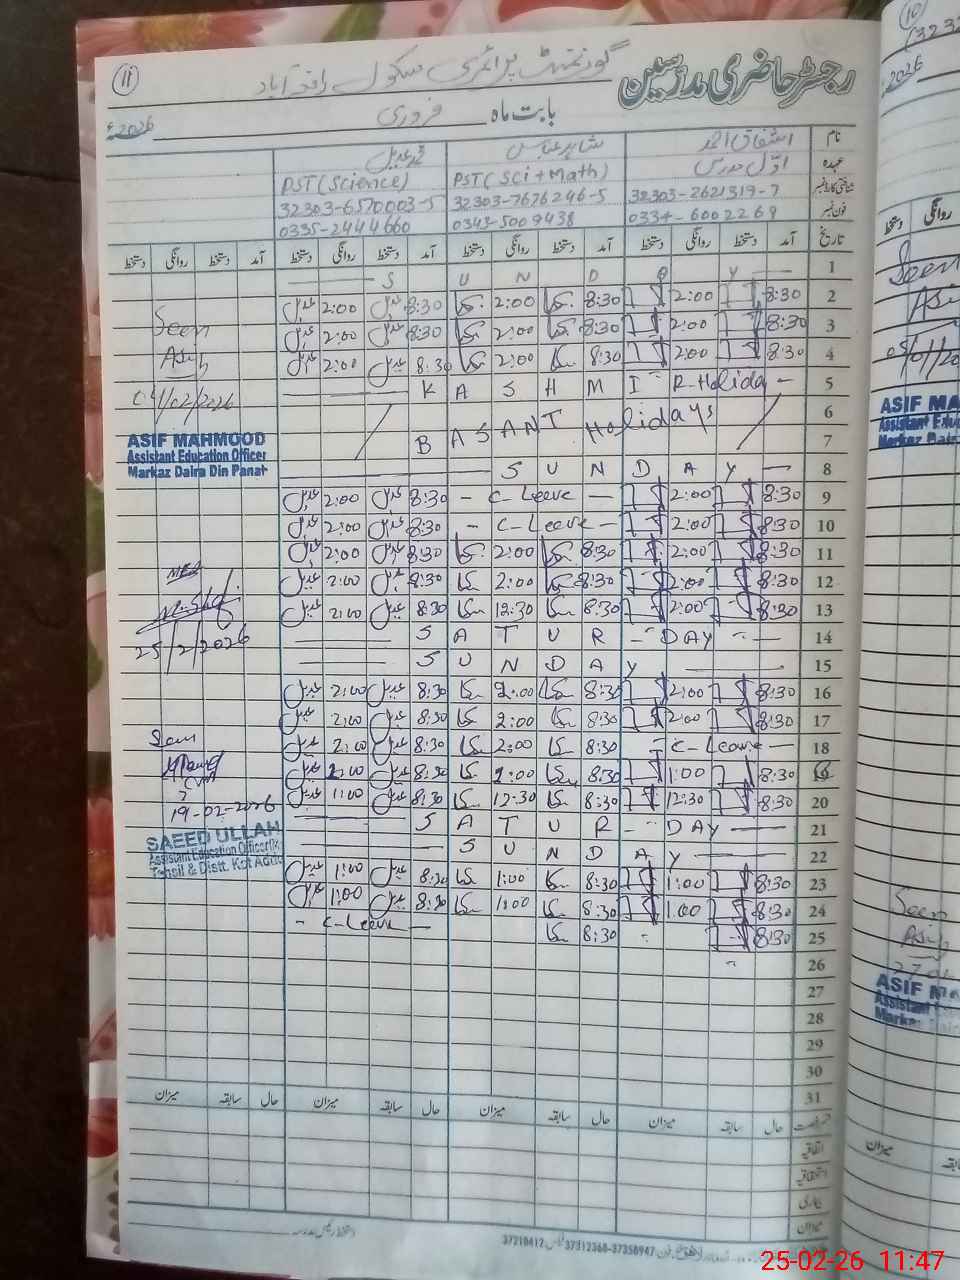 11
گورنمنٹ پرائمری سکول
رجسٹر حاضری مدرسین
2026ء
بابت ماہ فروری
نام اشفاق احمد شاہد عباس محمد عدیل
عہدہ اول مدرس PST (Sci + Math) PST (Science)
شناختی کارڈ نمبر 32303-2621319-7 32303-7676246-5 32303-6570003-5
فون نمبر 0334-6002269 0343-5009438 0335-2444660
تاریخ آمد دستخط روانگی دستخط آمد دستخط روانگی دستخط آمد دستخط روانگی دستخط آمد دستخط روانگی دستخط
1 S U N D A Y
2 8:30 2:00 8:30 2:00 8:30 2:00
3 8:30 2:00 8:30 2:00 8:30 2:00
4 8:30 2:00 8:30 2:00 8:30 2:00
5 K A S H M I R Holiday
6
7 B A S A N T Holidays
8 S U N D A Y
9 8:30 2:00 C-Leeve 8:30 2:00
10 8:30 2:00 C-Leeve 8:30 2:00
11 8:30 2:00 8:30 2:00 8:30 2:00
12 8:30 2:00 8:30 2:00 8:30 2:00
13 8:30 2:00 8:30 12:30 8:30 2:00
14 S A T U R DAY
15 S U N D A Y
16 8:30 2:00 8:30 2:00 8:30 2:00
17 8:30 2:00 8:30 2:00 8:30 2:00
18 C-Leeve 8:30 2:00 8:30 2:00
19 8:30 1:00 8:30 1:00 8:30 1:00
20 8:30 12:30 8:30 12:30 8:30 1:00
21 S A T U R DAY
22 S U N D A Y
23 8:30 1:00 8:30 1:00 8:30 1:00
24 8:30 1:00 8:30 1:00 8:30 1:00
25 8:30 8:30 C-Leeve
26
27
28
29
30
31
Seen
Asif
04/02/2026
ASIF MAHMOOD
Assistant Education Officer
Markaz Daira Din Panah
MEA
25/2/2026
Seen
19-02-2026
SAEED ULLAH
Assistant Education Officer
Tehsil & Distt. Kot Addu
حال سابقہ میزان حال سابقہ میزان حال سابقہ میزان حال سابقہ میزان
اتفاقیہ
استحقاقیہ
بیماری
میزان
37210412 37312368-37358947
10
2026ء
روانگی دستخط
Seen
Asif
05/01/20
ASIF MA
Assistant Edu
Markaz Dair
Seen
Asif
ASIF M
Assistant
Markaz
میزان
25-02-26 11:47